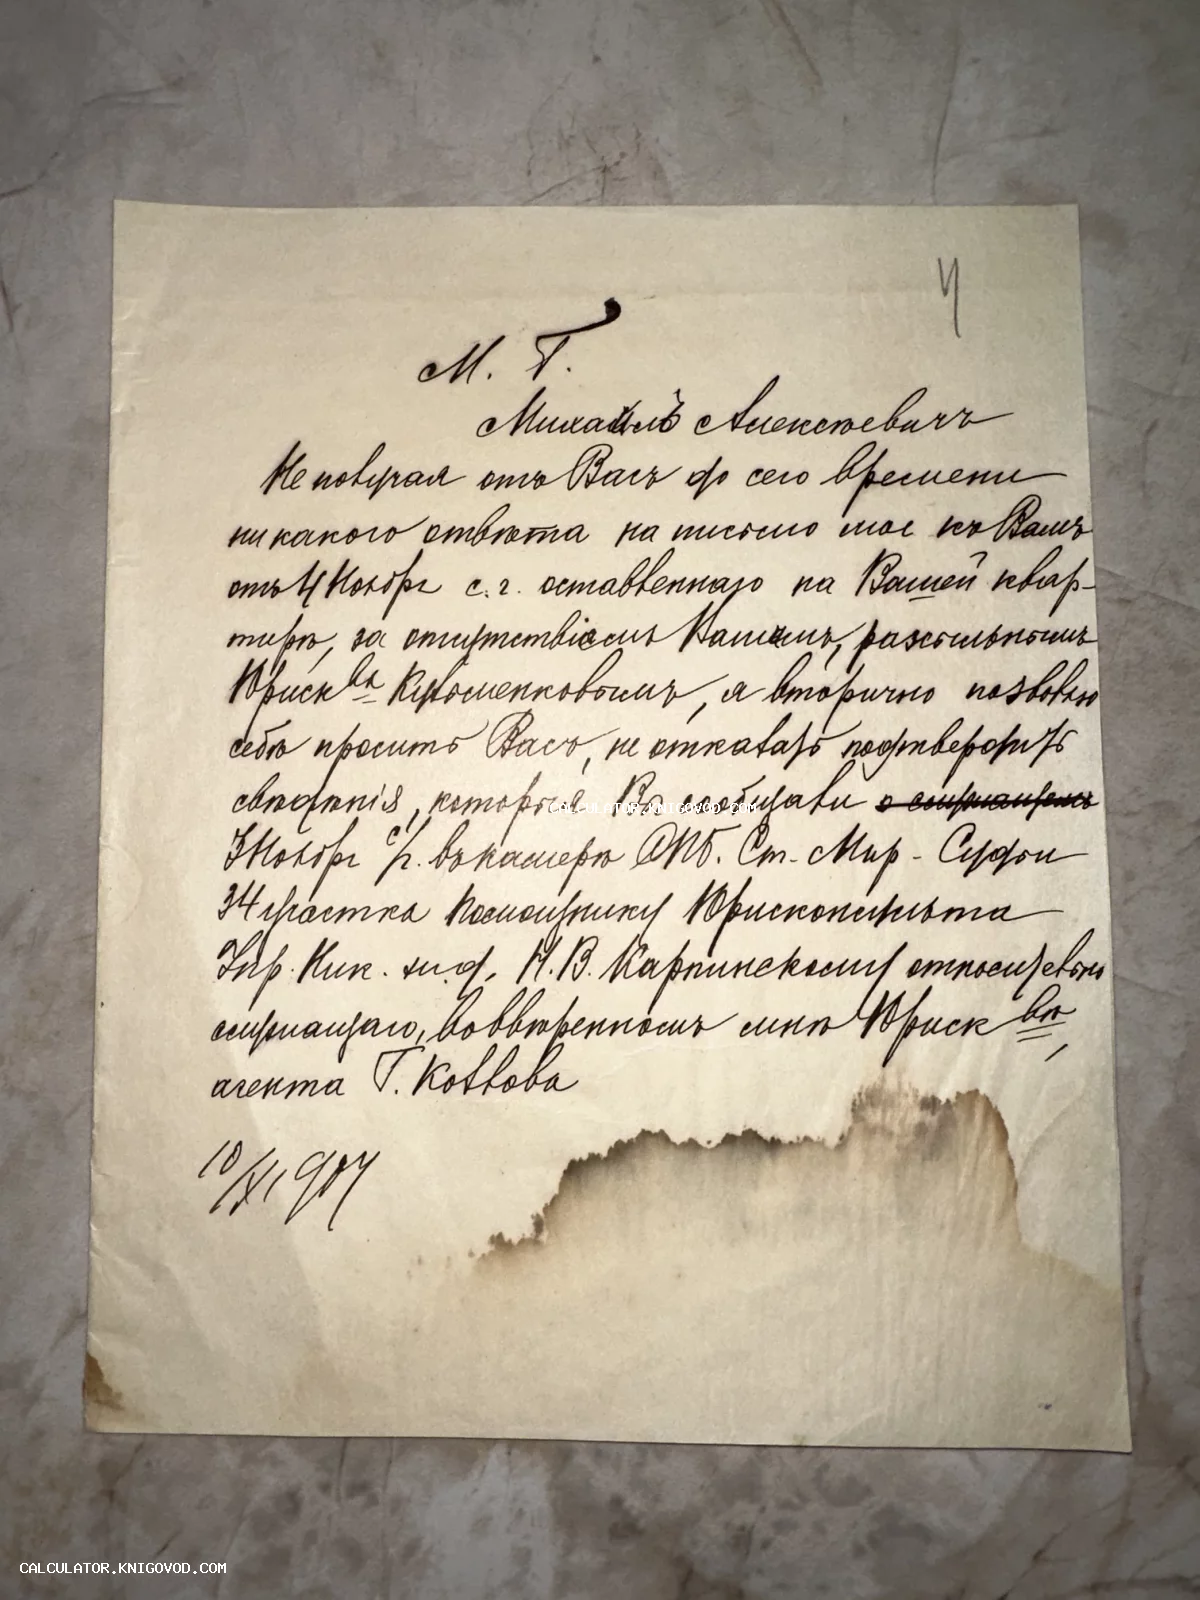 4
М. Г.
Михаилъ Алексѣевичъ
Не получая отъ Васъ до сего времени
никакого отвѣта на письмо мое къ Вамъ
отъ 4 Ноября с. г. оставленнаго на Вашей квар-
тирѣ, за отсутствіемъ Вашимъ, разсыльнымъ
Юриск ва, я вторично позволю
себѣ просить Васъ, не отказать подтвердить
свѣдѣнія, которыя Вы сообщали
CALCULATOR.KNIGOVOD.COM
3 Ноября с/г. въ камерѣ СПБ. Ст. Мир. Судьи
34 участка Помощнику Юрисконсульта
Упр. Ник. ж. д. Н. В. Карпинскому относительно
служащаго, во ввѣренномъ мнѣ Юриск вѣ,
агента Г. Козлова
10/XI 1907
CALCULATOR.KNIGOVOD.COM